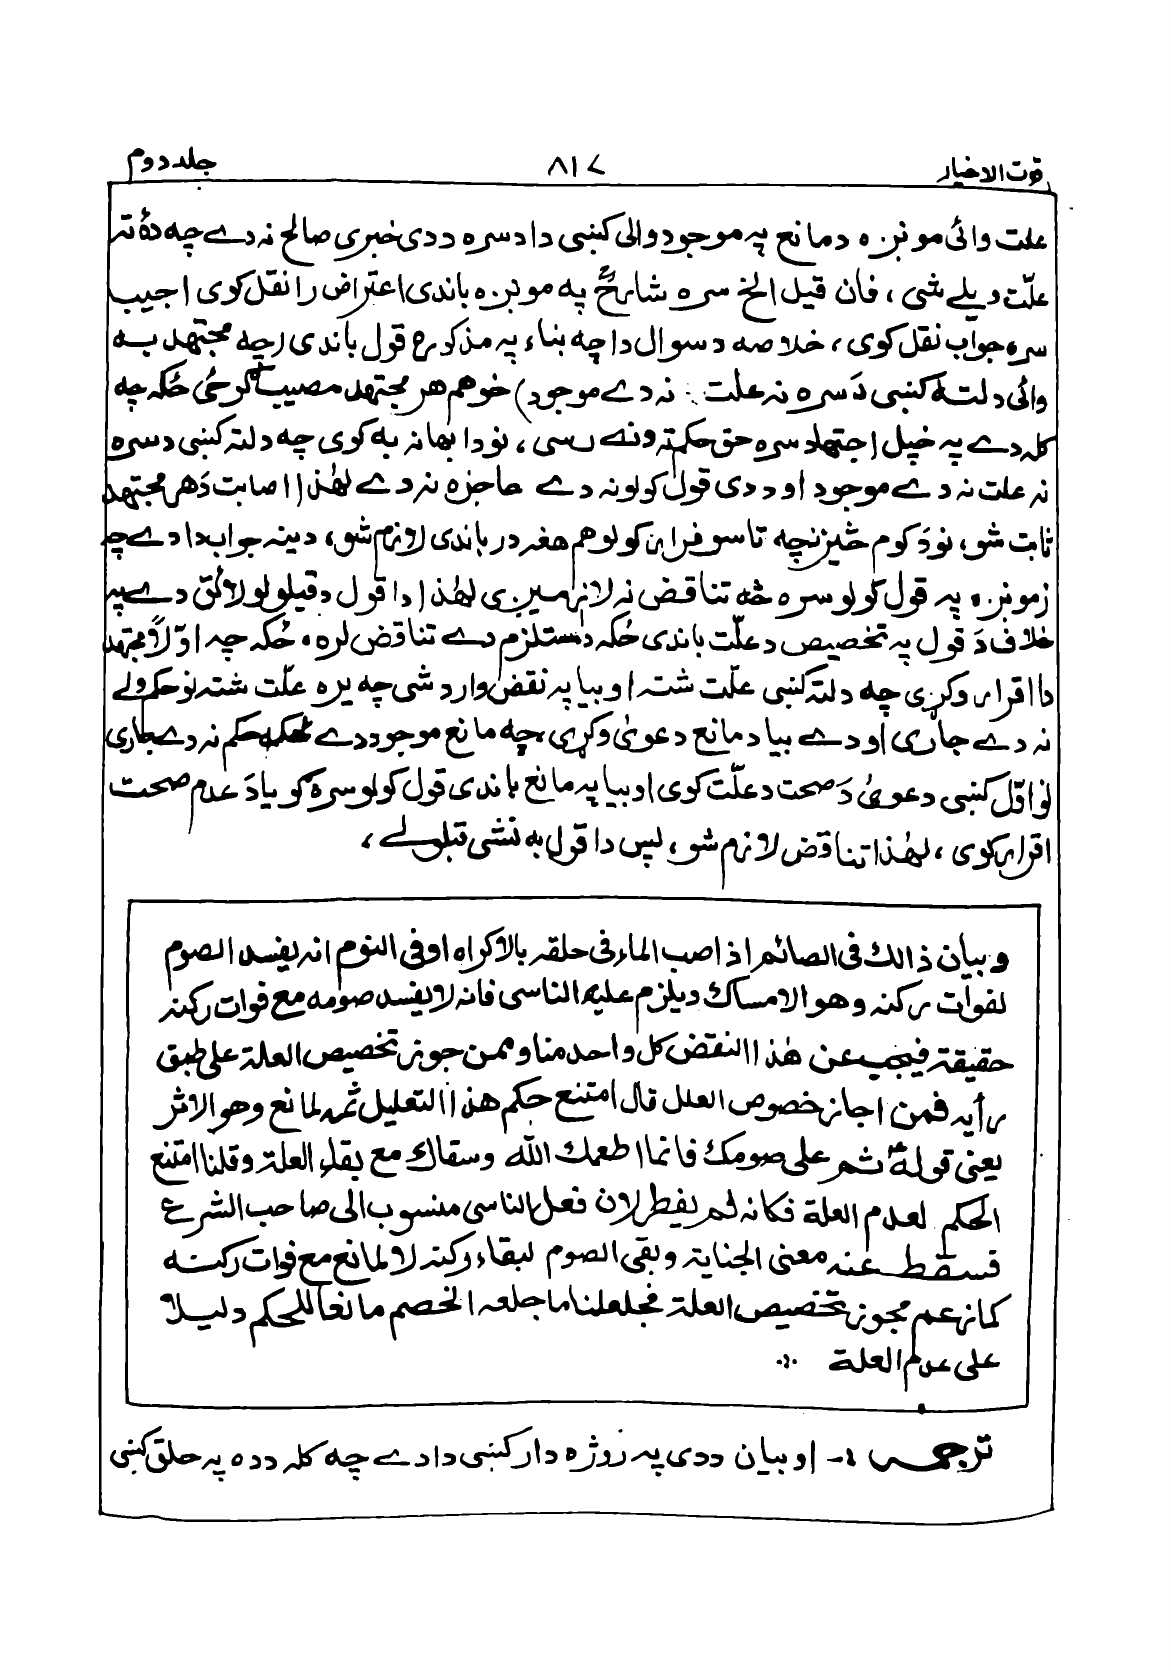 قوت الاخیار ۸۱۷ جلد دوم
علت وائی مونږه د مانع په موجود والی کښی دا دسره ددی خبری صالح نه دے چه دۀ ته
علّت ویلے شی ، فان قیل الخ سره شارحؒ په مونږه باندی اعتراض را نقل کوی اجیب
سره جواب نقل کوی ، خلاصه د سوال دا چه بناء په مذکوره قول باندی (چه مجتهد به
وائی دلته کښی دَسره نه علت نه دے موجود) خو هم هر مجتهد مصیب گرځی ځکه چه
کله دے په خپل اجتهاد سره حق حکم ته ونه رسی ، نو دا بهانه به کوی چه دلته کښی دسره
نه علت نه دے موجود او د دی قول کولو نه دے عاجزه نه دے لهٰذا اصابت دَهر مجتهد
ثابت شو، نو دَ کوم څیز نه چه تاسو فرار کولو هم هغه در باندی لازم شو، دینه جواب دا دے چه
زمونږه په قول کولو سره څه تناقض نه لازمیږی لهٰذا دا قول د قبلولو لائق دے په
خلاف دَ قول په تخصیص د علّت باندی ځکه مستلزم دے تناقض لره، ځکه چه اوّلاً مجتهد
دا اقرار وکړی چه دلته کښی علّت شته او بیا په نقض وارد شی چه یره علّت شته نو حکم ولے
نه دے جاری او دے بیا د مانع دعویٰ وکړی، چه مانع موجود دے ځکه حکم نه دے جاری
نو اوّل کښی دعویٰ دَ صحت د علّت کوی او بیا په مانع باندی قول کولو سره گویا دَ عدم صحت
اقرار کوی ، لهٰذا تناقض لازم شو ، پس دا قول به نشی قبلولے ،
و بیان ذالك فی الصائم اذا صب الماء فی حلقه بالاکراه او فی النوم انه یفسد الصوم
لفوات رکنه وهو الامساك ویلزم علیه الناسی فانه لا یفسد صومه مع فوات رکنه
حقیقة فیجیب عن هٰذا النقض کل واحد منا و ممن جوز تخصیص العلة علی طبق
رأیه فمن اجاز خصوص العلل قال امتنع حکم هذا التعلیل ثمه لمانع وهو الاثر
یعنی قولهؐ تم علی صومك فانما اطعمك الله وسقاك مع بقاء العلة وقلنا امتنع
الحکم لعدم العلة فکانه لم یفطر لان فعل الناسی منسوب الی صاحب الشرع
فسقط عنه معنی الجنایة وبقی الصوم لبقاء رکنه لا لمانع مع فوات رکنه
کما زعم مجوز تخصیص العلة فجلعلنا ما جلعه الخصم مانعا للحکم دلیلا
علی عدم العلة
ترجمه :- او بیان ددی په روژه دار کښی دا دے چه کله دده په حلق کښی